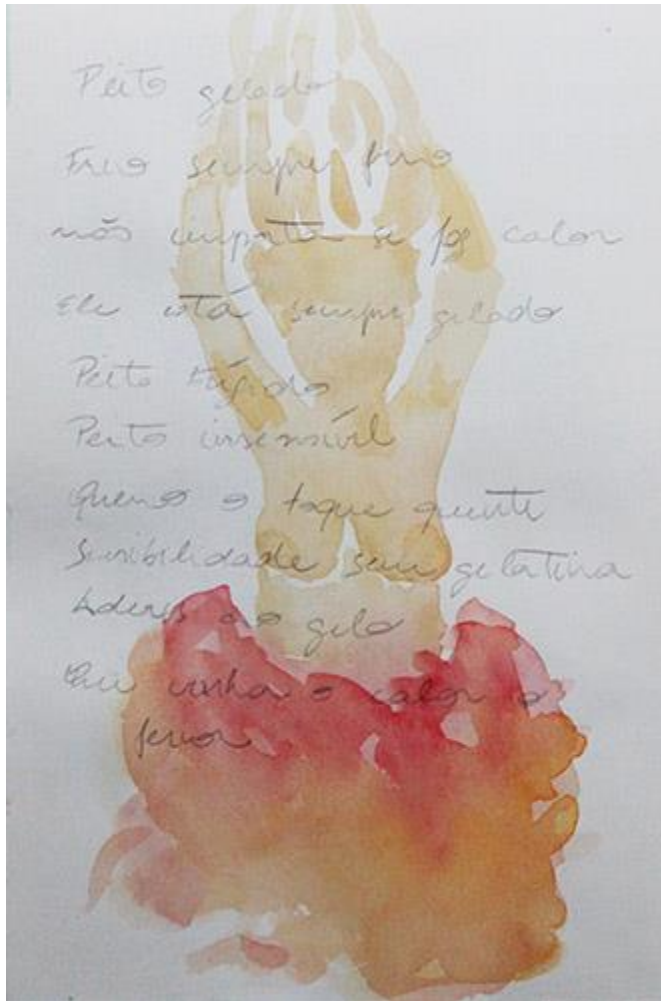 Peito gelado
Frio sempre frio
não importa se faz calor
Ele está sempre gelado
Peito frígido
Peito insensível
Quero o toque quente
Sensibilidade sem gelatina
Adeus ao gelo
Que venha o calor o
fervor